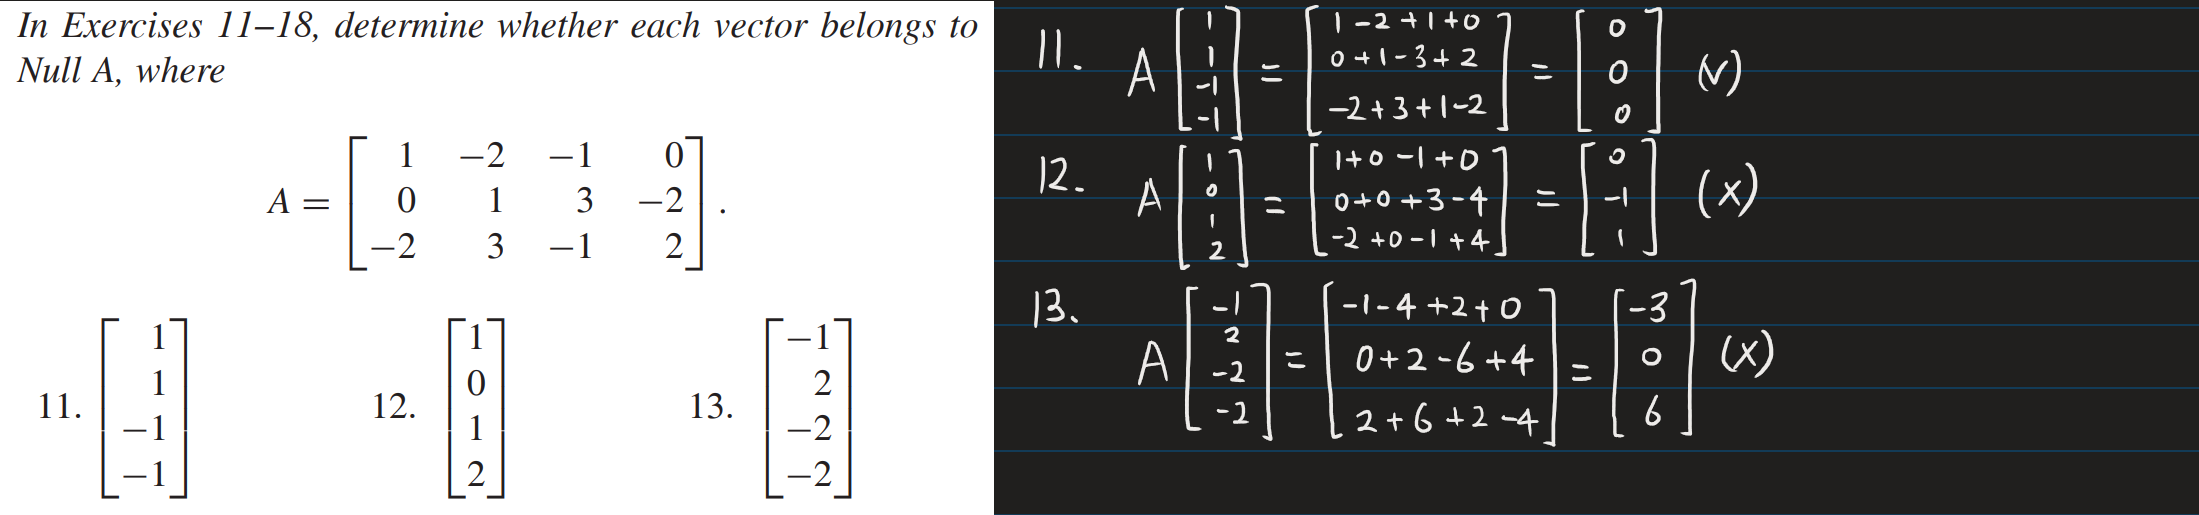 In Exercises 11–18, determine whether each vector belongs to
Null A, where
A = [ 1 −2 −1 0
0 1 3 −2
−2 3 −1 2 ] .
11. [ 1 1 −1 −1 ]
12. [ 1 0 1 2 ]
13. [ −1 2 −2 −2 ]
11. A [ 1 1 -1 -1 ] = [ 1-2+1+0
0+1-3+2
-2+3+1-2 ] = [ 0 0 0 ] (v)
12. A [ 1 0 1 2 ] = [ 1+0-1+0
0+0+3-4
-2+0-1+4 ] = [ 0 -1 1 ] (x)
13. A [ -1 2 -2 -2 ] = [ -1-4+2+0
0+2-6+4
2+6+2-4 ] = [ -3 0 6 ] (x)